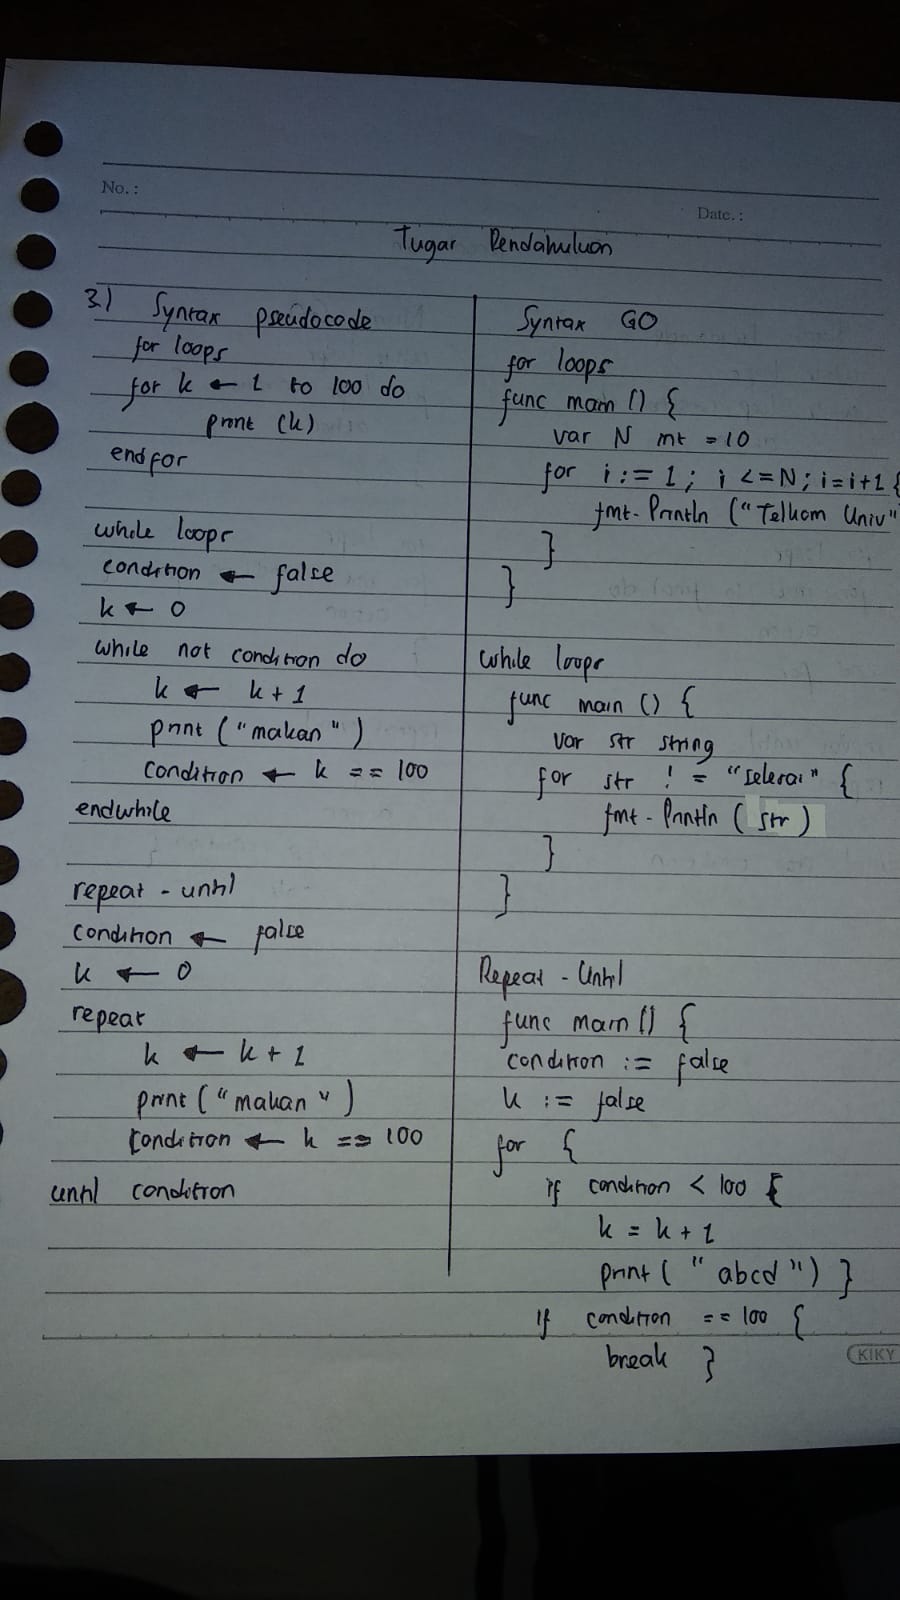 No.:
Date.:
Tugas Pendahuluan
3) Syntax pseudocode
for loops
for k ← 1 to 100 do
print (k)
endfor
while loops
condition ← false
k ← 0
while not condition do
k ← k + 1
print ("makan")
condition ← k == 100
endwhile
repeat - until
condition ← false
k ← 0
repeat
k ← k + 1
print ("makan")
condition ← k == 100
until condition
Syntax GO
for loops
func main () {
var N int = 10
for i := 1; i <= N; i = i+1 {
fmt. Println ("Telkom Univ"
}
}
while loops
func main () {
var str string
for str != "selesai" {
fmt. Println (str)
}
}
Repeat - Until
func main () {
condition := false
k := false
for {
if condition < 100 {
k = k + 1
print ("abcd") }
if condition == 100 {
break }
KIKY